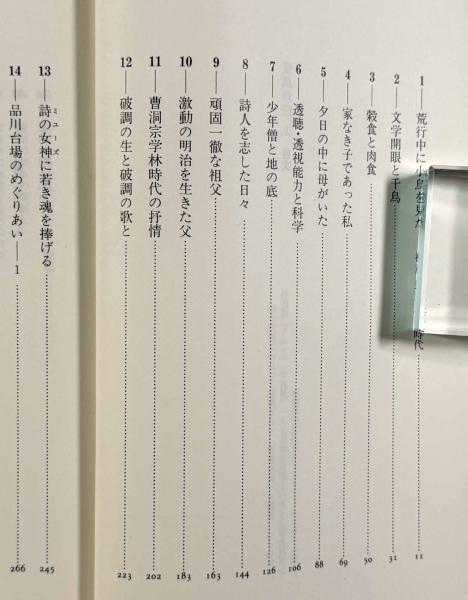 1──荒行中に小鳥を見た 時代……11
2──文学開眼と千鳥……31
3──穀食と肉食……50
4──家なき子であった私……69
5──夕日の中に母がいた……88
6──透聴・透視能力と科学……106
7──少年僧と地の底……126
8──詩人を志した日々……144
9──頑固一徹な祖父……163
10──激動の明治を生きた父……183
11──曹洞宗学林時代の抒情……202
12──破調の生と破調の歌と……223
13──詩の女神に若き魂を捧げる……245
ミューズ
14──品川台場のめぐりあい──1……266